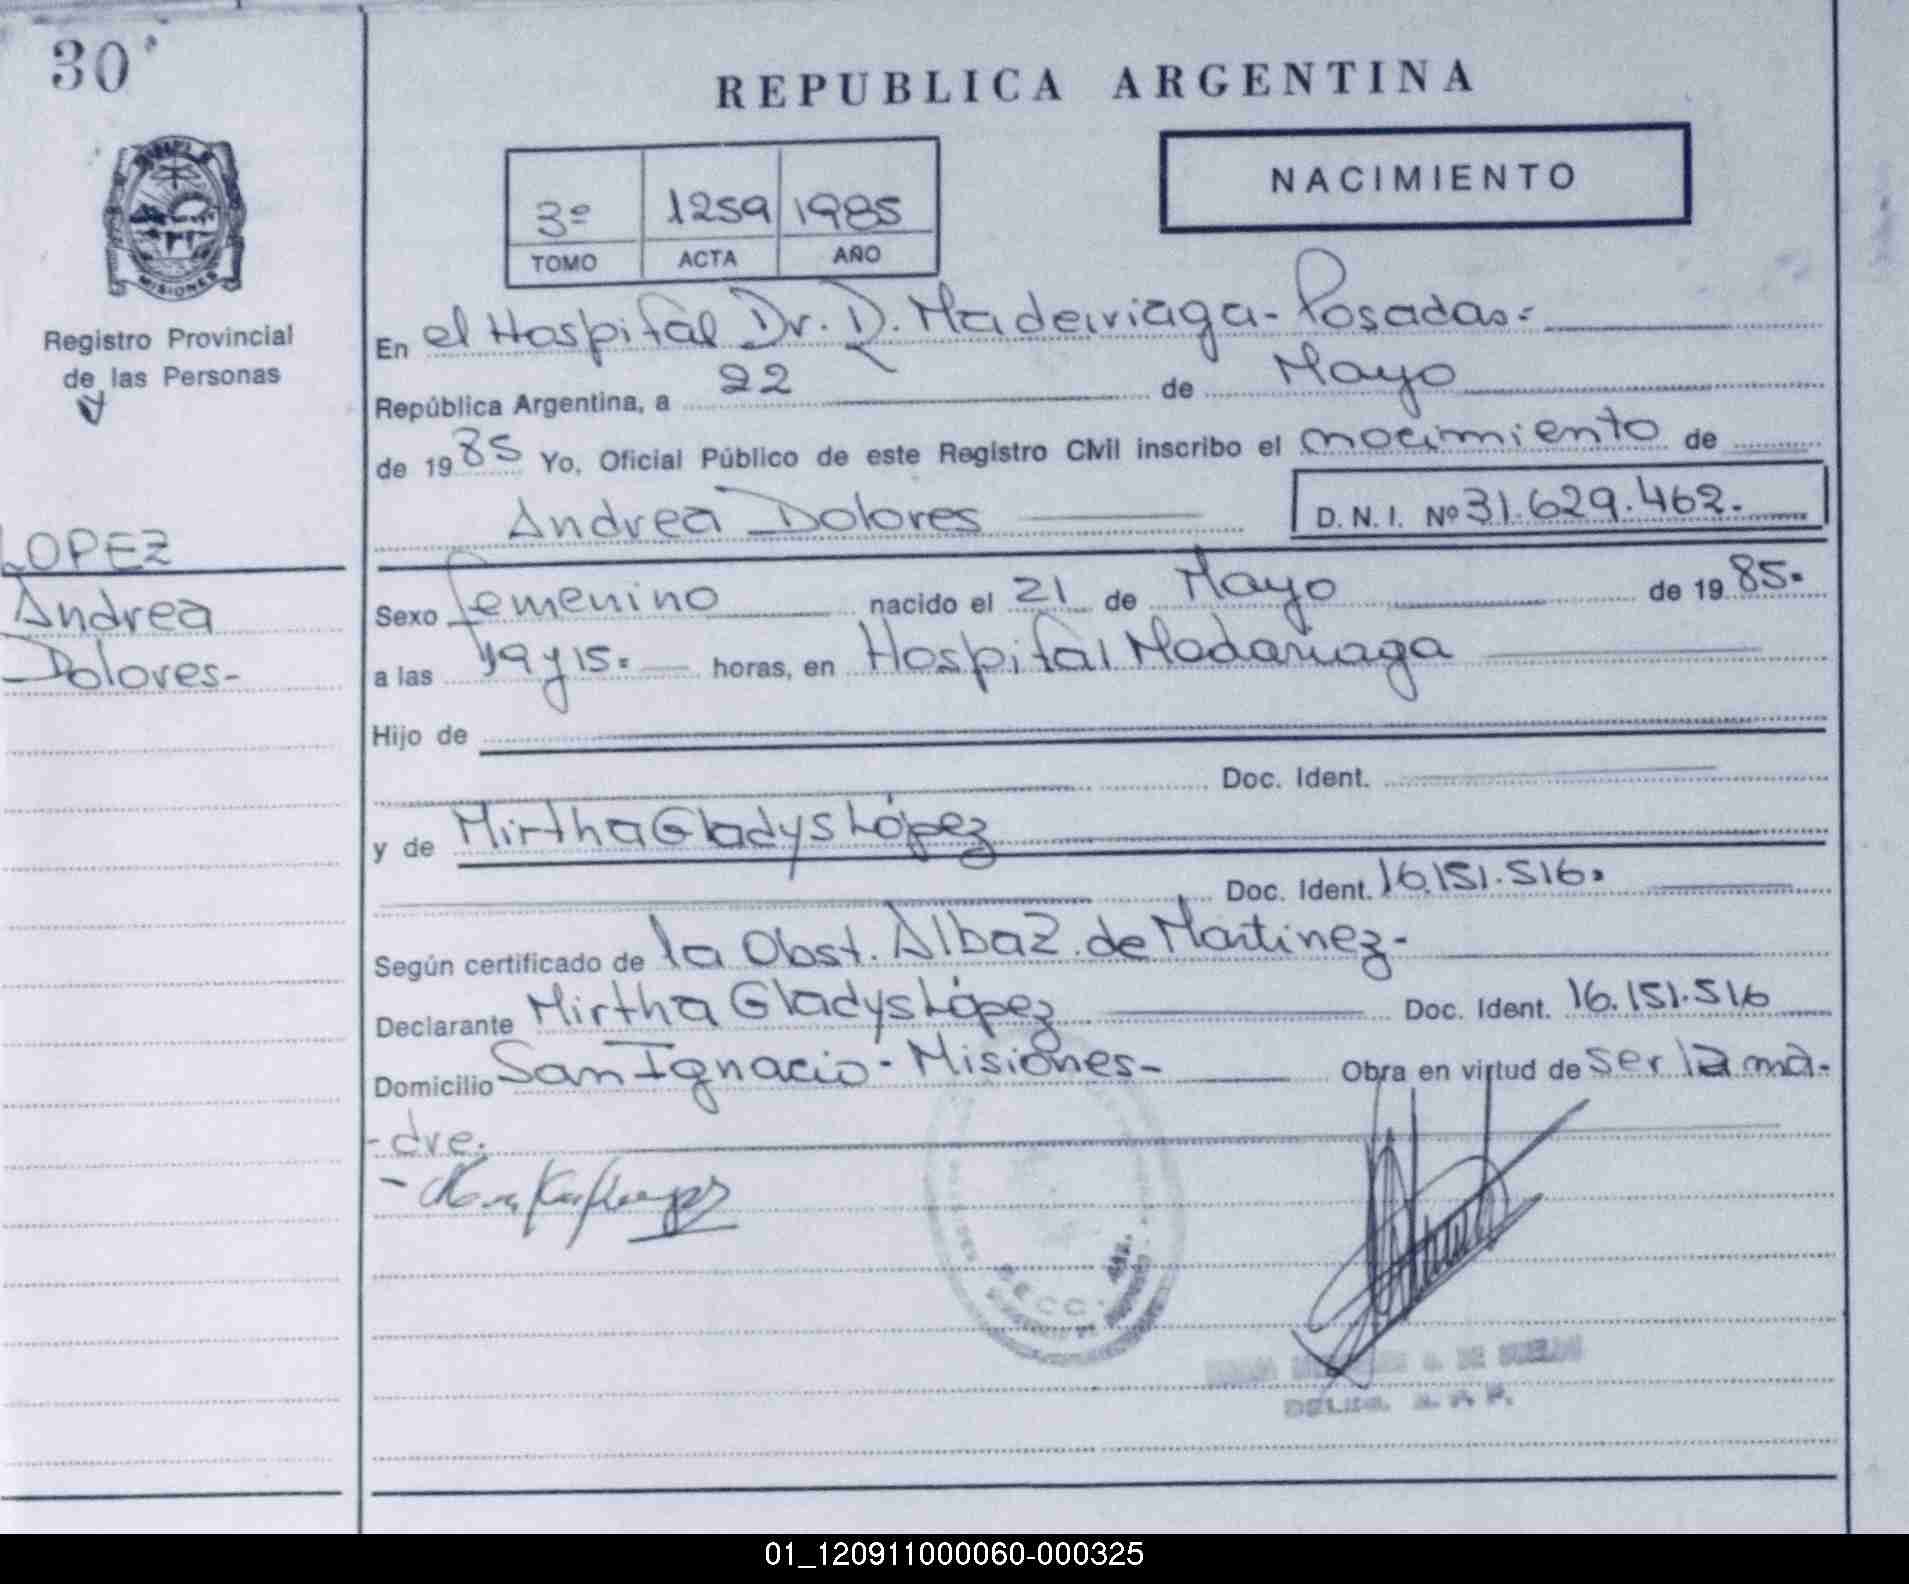 30
REPUBLICA ARGENTINA
3º 1259 1985
TOMO ACTA AÑO
NACIMIENTO
MISIONES
Registro Provincial
de las Personas
LOPEZ
Andrea
Dolores-
En el Hospital Dr. D. Madariaga- Posadas.-
República Argentina, a 22 de Mayo
de 1985 Yo, Oficial Público de este Registro Civil inscribo el nacimiento de
Andrea Dolores D. N. I. Nº 31.629.462.
Sexo femenino nacido el 21 de Mayo de 1985.
a las 19 y 15.- horas, en Hospital Madariaga
Hijo de
Doc. Ident.
y de Mirtha Gladys López
Doc. Ident. 16.151.516.
Según certificado de la Obst. Alba Z. de Martinez-
Declarante Mirtha Gladys López Doc. Ident. 16.151.516
Domicilio San Ignacio - Misiones- Obra en virtud de ser la ma-
-dre.
SECC.
DE
01_120911000060-000325